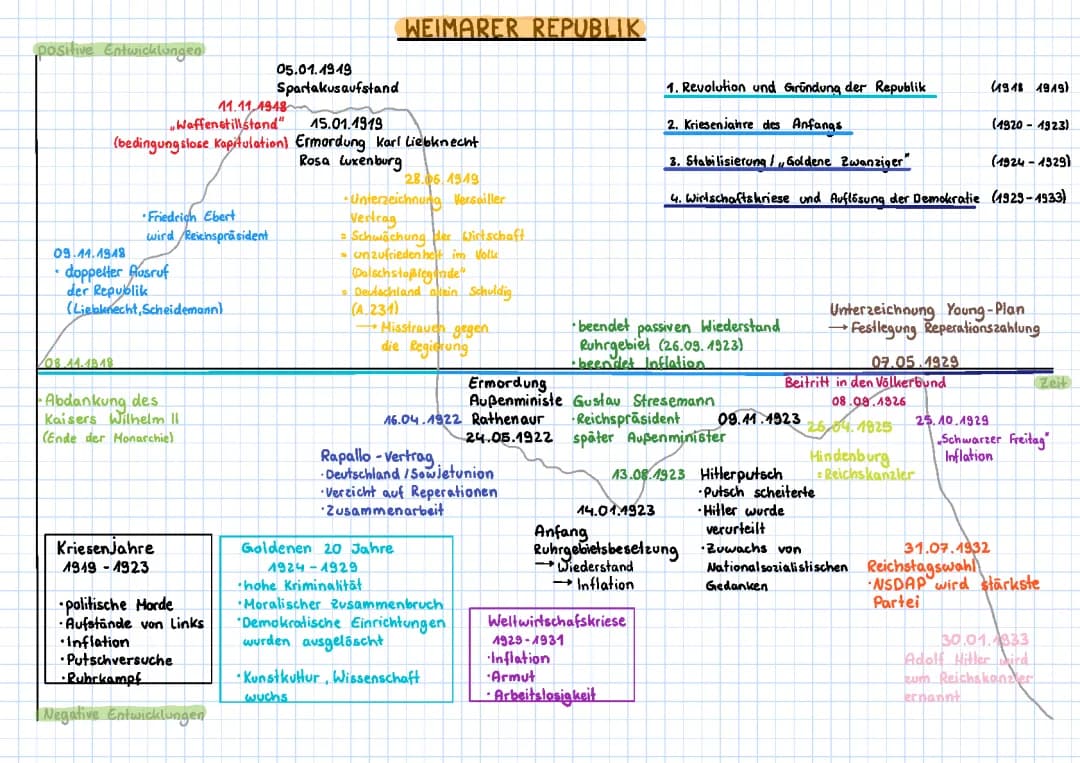 WEIMARER REPUBLIK
positive Entwicklungen
05.01.1919
Spartakusaufstand
11.11.1918
„Waffenstillstand"
(bedingungslose Kapitulation)
15.01.1919
Ermordung Karl Liebknecht
Rosa Luxenburg
1. Revolution und Gründung der Republik (1918 1919)
2. Kriesenjahre des Anfangs (1920 - 1923)
3. Stabilisierung / „Goldene Zwanziger" (1924 - 1929)
4. Wirtschaftskriese und Auflösung der Demokratie (1929-1933)
28.06.1919
• Unterzeichnung Versailler
Vertrag
= Schwächung der Wirtschaft
= unzufriedenheit im Volk
(Dolschstoßlegende"
= Deutschland allein Schuldig
(A.231)
→ Misstrauen gegen
die Regierung
• Friedrich Ebert
wird Reichspräsident
09.11.1918
• doppelter Ausruf
der Republik
(Liebknecht, Scheidemann)
08.11.1918
• Abdankung des
Kaisers Wilhelm II
(Ende der Monarchie)
• beendet passiven Wiederstand
Ruhrgebiet (26.09.1923)
• beendet Inflation
Gustav Stresemann
• Reichspräsident
später Außenminister
13.08.1923
Unterzeichnung Young-Plan
→ Festlegung Reperationszahlung
07.05.1929
Zeit
Ermordung
Außenministe
Rathenaur
24.05.1922
16.04.1922
Rapallo - Vertrag
• Deutschland / Sowjetunion
• Verzicht auf Reperationen
• Zusammenarbeit
14.01.1923
Anfang
Ruhrgebietsbesetzung
→ Wiederstand
→ Inflation
09.11.1923
Hitlerputsch
• Putsch scheiterte
• Hitler wurde
verurteilt
• Zuwachs von
Nationalsozialistischen
Gedanken
Beitritt in den Völkerbund
08.09.1926
26.04.1925
Hindenburg
= Reichskanzler
25.10.1929
„Schwarzer Freitag"
Inflation
31.07.1932
Reichstagswahl
• NSDAP wird stärkste
Partei
30.01.1933
Adolf Hitler wird
zum Reichskanzler
ernannt
Kriesenjahre
1919 - 1923
• politische Morde
• Aufstände von Links
• Inflation
• Putschversuche
• Ruhrkampf
Goldenen 20 Jahre
1924 - 1929
• hohe Kriminalität
• Moralischer Zusammenbruch
• Demokratische Einrichtungen
wurden ausgelöscht
• Kunstkultur, Wissenschaft
wuchs
Weltwirtschafskriese
1929-1931
• Inflation
• Armut
• Arbeitslosigkeit
Negative Entwicklungen